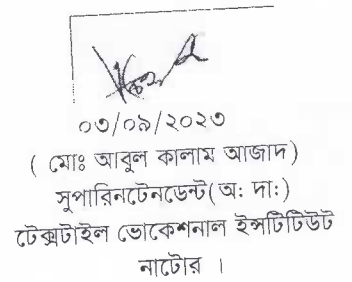 ০৩/০৯/২০২৩
( মোঃ আবুল কালাম আজাদ)
সুপারিনটেনডেন্ট(অ: দা:)
টেক্সটাইল ভোকেশনাল ইন্সটিটিউট
নাটোর ।